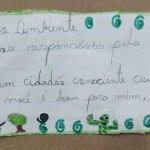 Ambiente
responsáveis pela
um cidadão consciente cui
você é bom para mim.